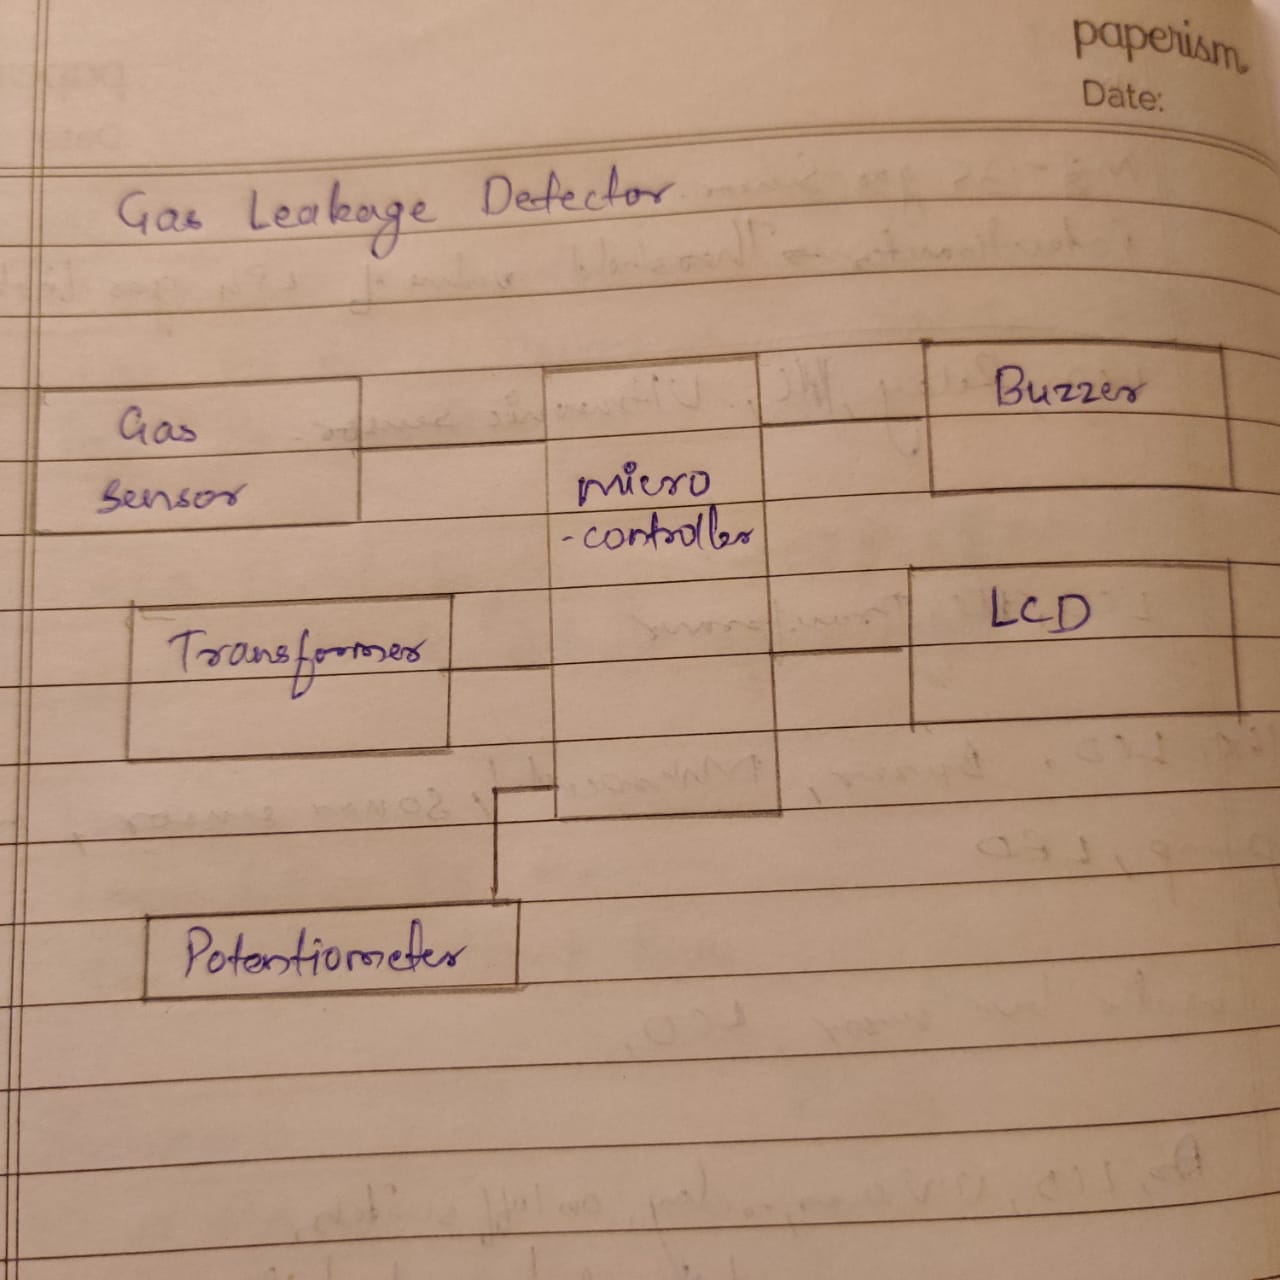 paperism
Date:
Gas Leakage Detector
Gas
sensor
micro
-controller
Buzzer
Transformer
LCD
Potentiometer